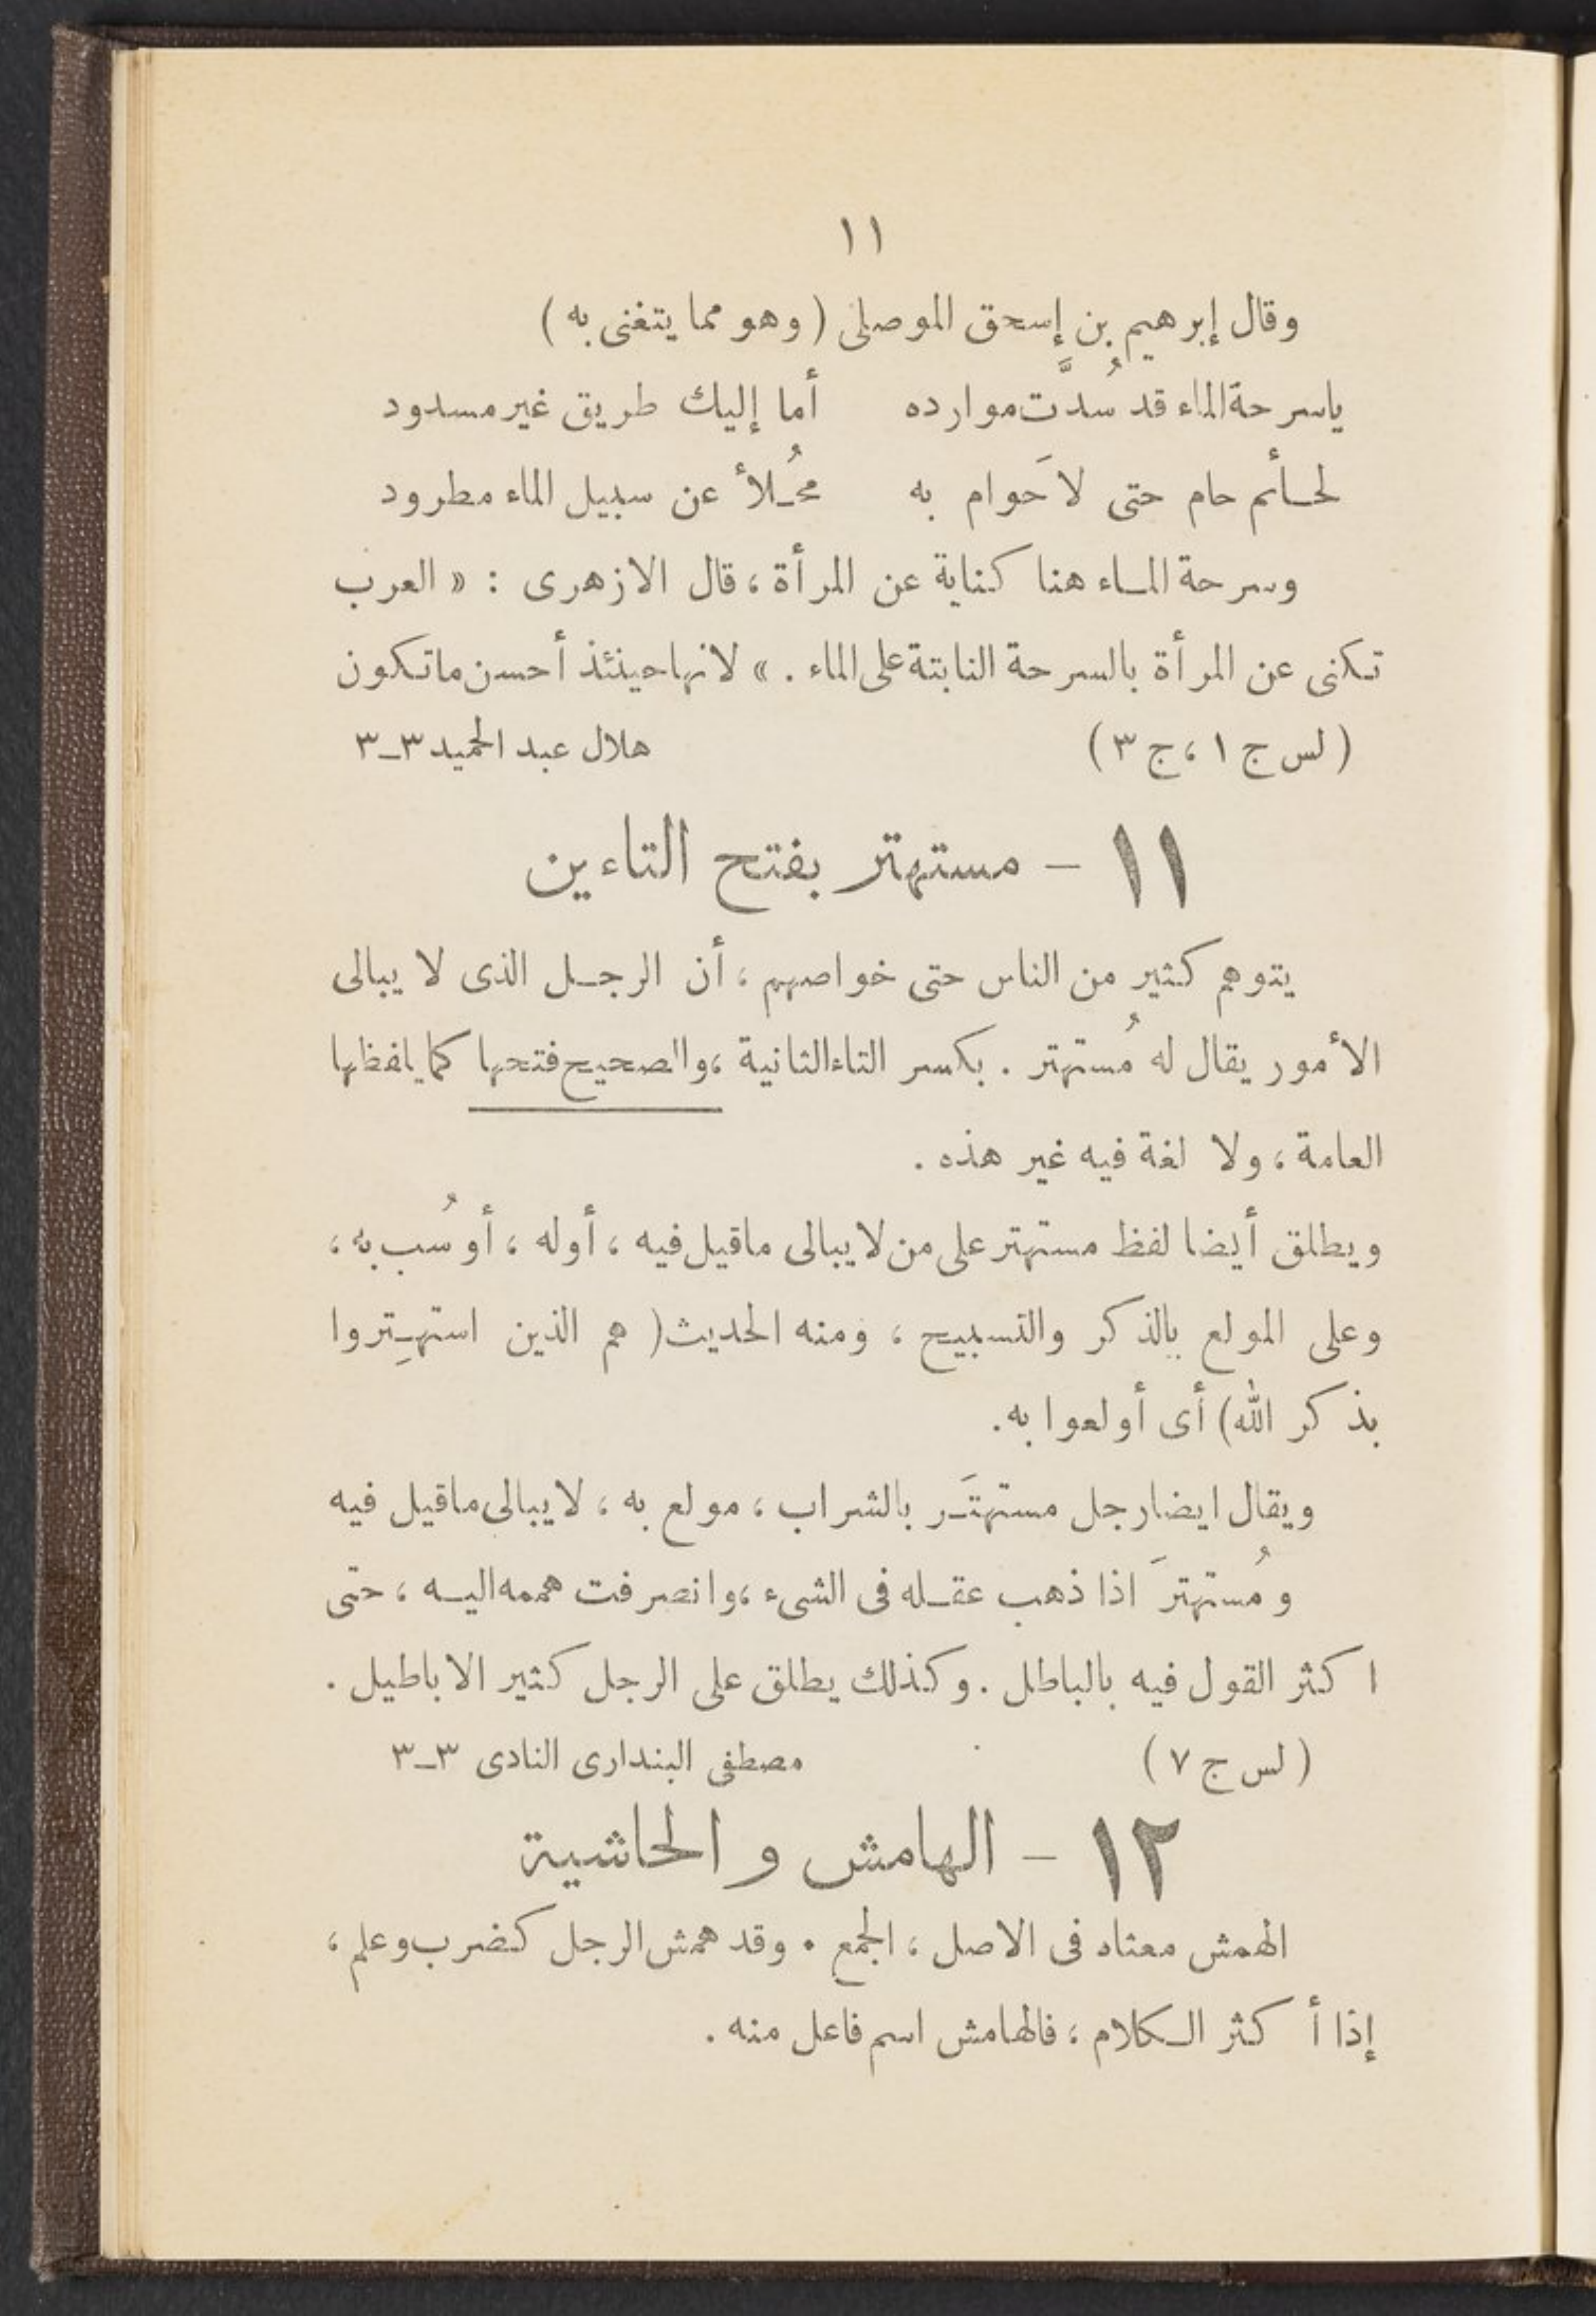 ١١
وقال إبرهيم بن إسحق الموصلى ( وهو مما يتغنى به )
ياسرحة الماء قد سُدَّت موارده أما إليك طريق غير مسدود
لحـائم حام حتى لا حَوام به محُـلأ عن سبيل الماء مطرود
وسرحة المـاء هنا كناية عن المرأة ، قال الازهرى : « العرب
تكنى عن المرأة بالسرحة النابتة على الماء . » لانها حينئذ أحسن ماتكون
( لس ج ١ ، ج ٣ ) هلال عبد الحميد ٣ـ٣
١١ – مستهتر بفتح التاءين
يتوهم كثير من الناس حتى خواصهم ، أن الرجـل الذى لا يبالى
الأمور يقال له مُستهتر . بكسر التاء الثانية ، والصحيح فتحها كما يلفظها
العامة ، ولا لغة فيه غير هذه .
ويطلق أيضا لفظ مستهتر على من لا يبالى ماقيل فيه ، أوله ، أو سُب به ،
وعلى المولع بالذكر والتسبيح ، ومنه الحديث ( هم الذين استهـِتروا
بذكر الله ) أى أولعوا به .
ويقال ايضا رجل مستهتَـر بالشراب ، مولع به ، لا يبالى ماقيل فيه
ومُستهترَ اذا ذهب عقـله فى الشىء ، وانصرفت هممه اليـه ، حتى
اكثر القول فيه بالباطل . وكذلك يطلق على الرجل كثير الاباطيل .
( لس ج ٧ ) مصطفى البندارى النادى ٣ـ٣
١٢ – الهامش و الحاشية
الهمش معناه فى الاصل ، الجمع . وقد همش الرجل كضرب وعلم ،
إذا أكثر الـكلام ، فالهامش اسم فاعل منه .